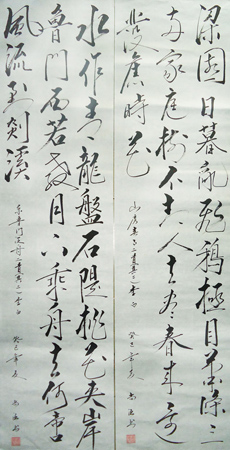 梁園日暮亂飛鴉極目蕭條三
兩家庭樹不知人去盡春來還
發舊時花
山房春事二首其二
癸巳年夏
水作青龍盤石隄桃花夾岸
魯門西若教月下乘舟去何啻
風流到剡溪
東魯門泛舟二首其二李白
癸巳年夏